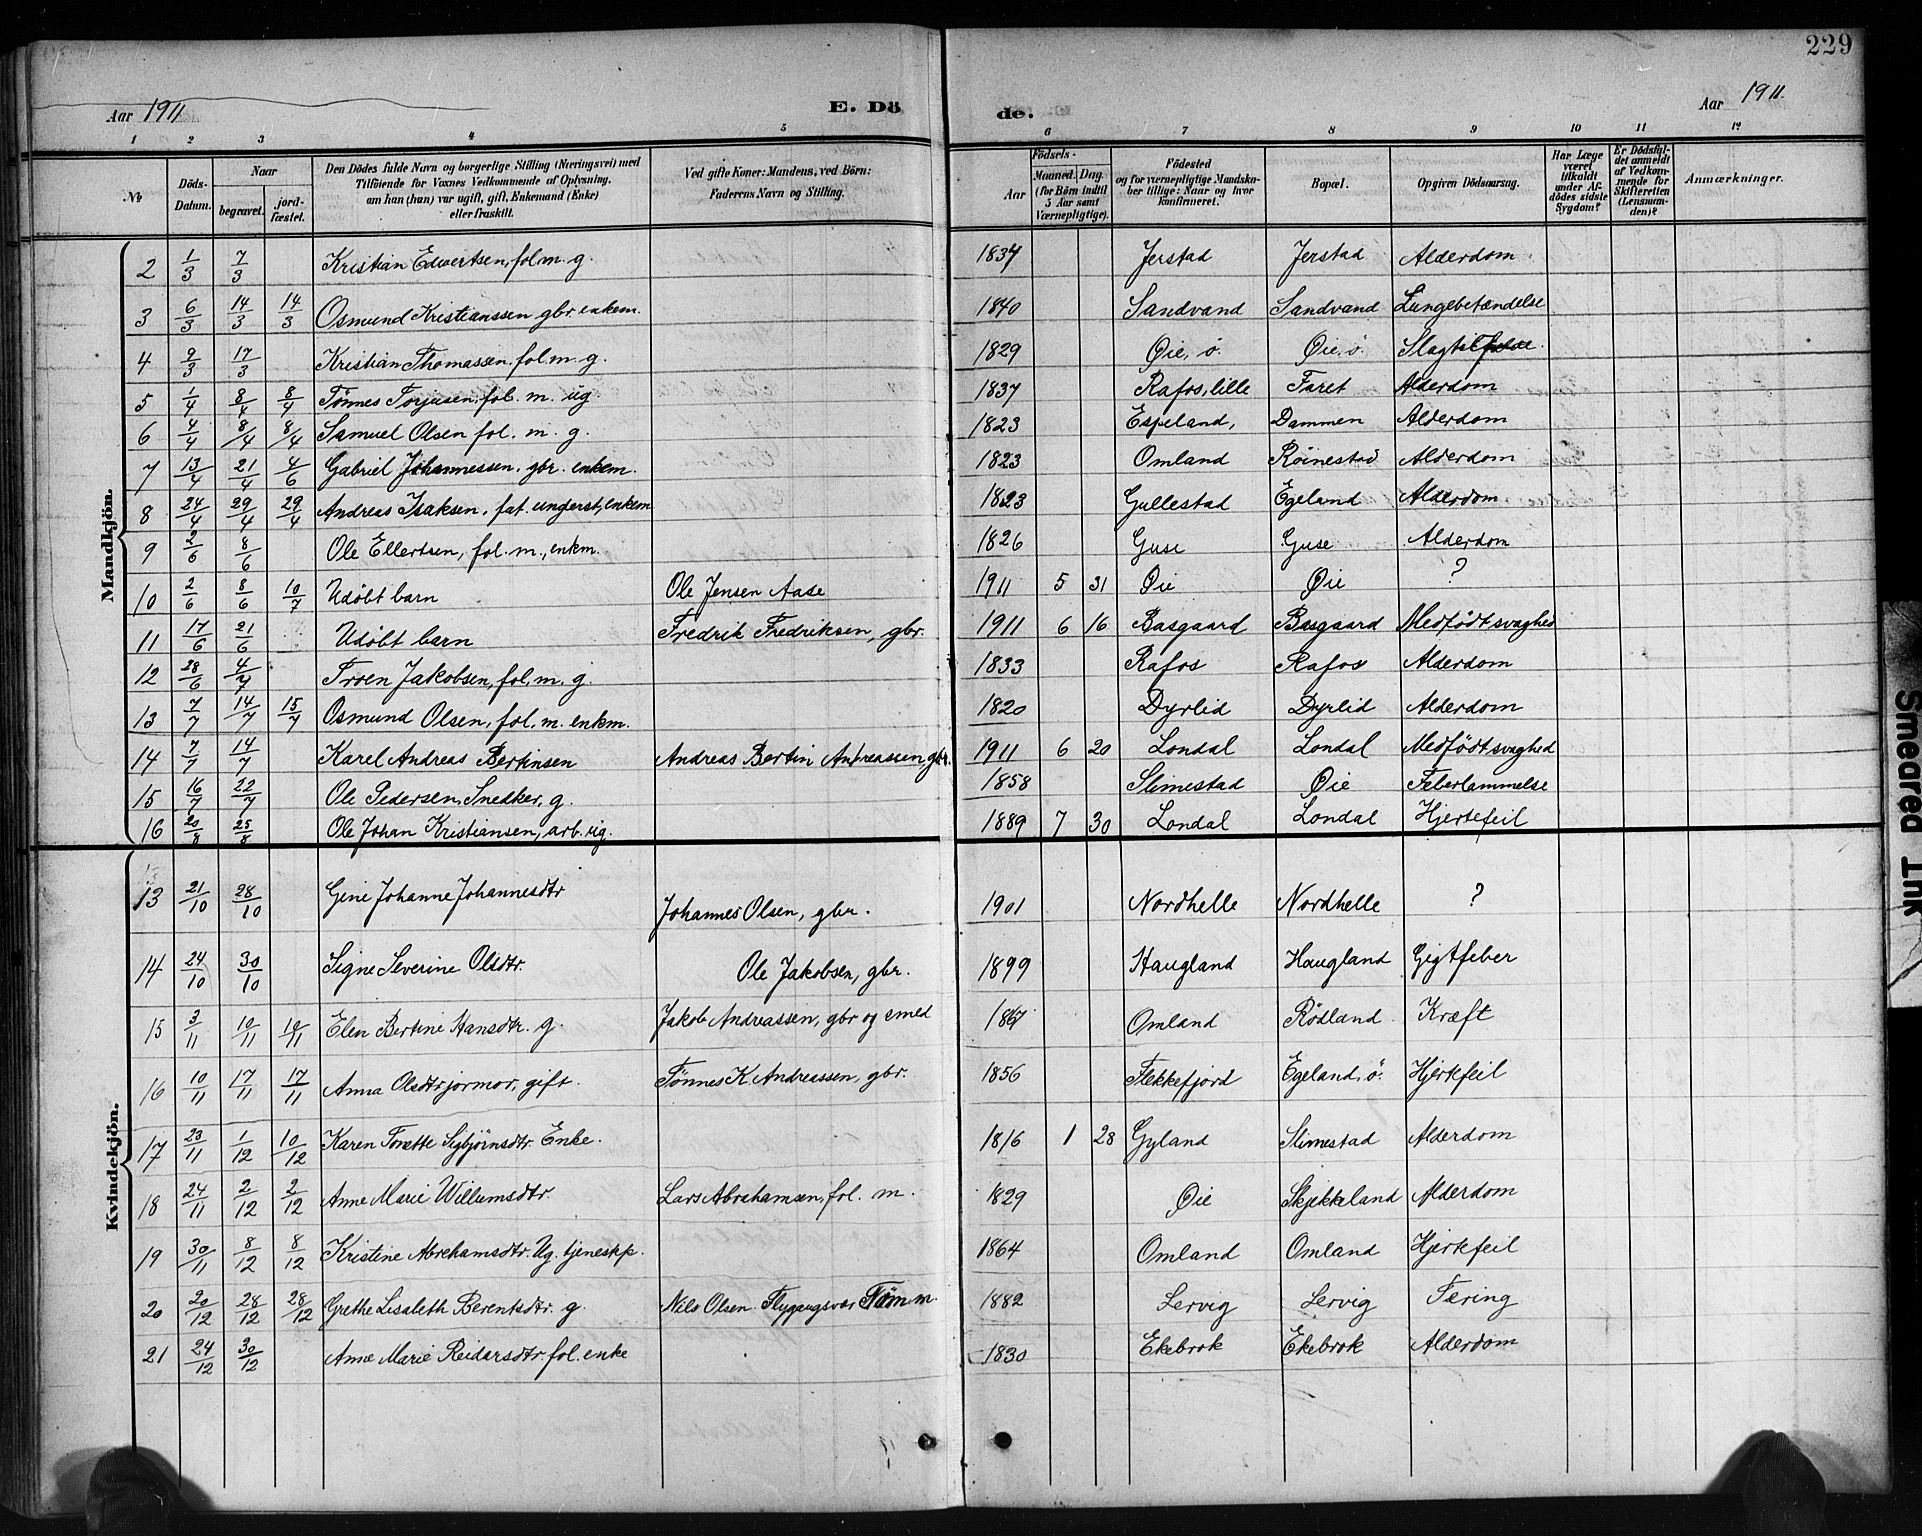 229
Aar 1911 E. Dö de. Aar 1911.
1 2 3 4 5 6 7 8 9 10 11 12
№ Döds-Datum. Naar begravet. jordfæstet. Den Dödes fulde Navn og borgerlige Stilling (Næringsvei) med Tilföiende for Voxnes Vedkommende af Oplysning, om han (hun) var ugift, gift, Enkemand (Enke) eller fraskilt. Ved gifte Koner: Mandens, ved Börn: Faderens Navn og Stilling. Födsels- Aar Maaned. Dag. (for Börn indtil 3 Aar samt Værnepligtige). Födested og for værnepligtige Mandskaber tillige: Naar og hvor konfirmeret. Bopæl. Opgiven Dödsaarsag. Har Læge været tilkaldt under Afdödes sidste Sygdom? Er Dödsfaldet anmeldt af Vedkommende for Skifteretten (Lensmanden)? Anmærkninger.
Mandkjön.
2 1/3 7/3 Kristian Edvertsen, fol.m. g. 1837 Jerstad Jerstad Alderdom
3 6/3 14/3 14/3 Osmund Kristianssen gbr. enkem. 1840 Sandvand Sandvand Lungebetændelse
4 9/3 17/3 Kristian Thomassen, fol.m. g. 1829 Øie, ö. Øie, ö. Slagtilfælde.
5 1/4 8/4 8/4 Tønnes Torjusen, fol. m. ug. 1837 Rafos, lille Faret Alderdom
6 4/4 8/4 8/4 Samuel Olsen fol. m. g. 1823 Espeland, Dammen Alderdom
7 13/4 21/4 4/6 Gabriel Johannessen, gbr. enkem. 1823 Omland Røinestad Alderdom
8 24/4 29/4 29/4 Andreas Isaksen, fat. underst, enkem 1823 Gullestad Egeland Alderdom
9 2/6 8/6 Ole Ellertsen, fol. m., enkm. 1826 Guse Guse Alderdom
10 2/6 8/6 10/7 Udöbt barn Ole Jensen Aase 1911 5 31 Øie Øie ?
11 17/6 21/6 Udöbt barn Fredrik Fredriksen, gbr. 1911 6 16 Basgaard Basgaard Medfödt svaghed
12 28/6 4/7 Troen Jakobsen, fol. m. g. 1833 Rafos Rafos Alderdom
13 7/7 14/7 15/7 Osmund Olsen, fol. m. enkm. 1820 Dyrlid Dyrlid Alderdom
14 7/7 14/7 Karel Andreas Bertinsen Andreas Bertin Andreassen, gbr. 1911 6 20 Londal Londal Medfödt svaghed
15 16/7 22/7 Ole Pedersen, Snedker, g. 1858 Slimestad Øie Feberlammelse
16 20/8 25/8 Ole Johan Kristiansen, arb. ug. 1889 7 30 Londal Londal Hjertefeil
Kvindekjön.
13 21/10 28/10 Gine Johanne Johannesdtr Johannes Olsen, gbr. 1901 Nordhelle Nordhelle ?
14 24/10 30/10 Signe Severine Olsdtr. Ole Jakobsen, gbr. 1899 Haugland Haugland Gigtfeber
15 3/11 10/11 10/11 Elen Bertine Hansdtr. g. Jakob Andreassen, gbr og smed 1867 Omland Rødland Kræft
16 10/11 17/11 17/11 Anna Olsdtr jormor, gift. Tønnes K. Andreassen, gbr. 1856 Flekkefjord Egeland, ö. Hjertefeil
17 23/11 1/12 10/12 Karen Torette Sigbjørnsdtr. Enke. 1816 1 28 Gyland Slimestad Alderdom
18 24/11 2/12 2/12 Anne Marie Willumsdtr. Lars Abrahamsen, fol. m. 1829 Øie Skjekkeland Alderdom
19 30/11 8/12 8/12 Kristine Abrehamsdtr. Ug. tjenestp. 1864 Omland Omland Hjertefeil
20 20/12 28/12 28/12 Grethe Lisabeth Berentsdtr. g. Nils Olsen 1882 Lervig Lervig Tering
21 24/12 30/12 Anne Marie Reidarsdtr. fol. enke 1830 Ekebrok Ekebrok Alderdom
Smeared Ink